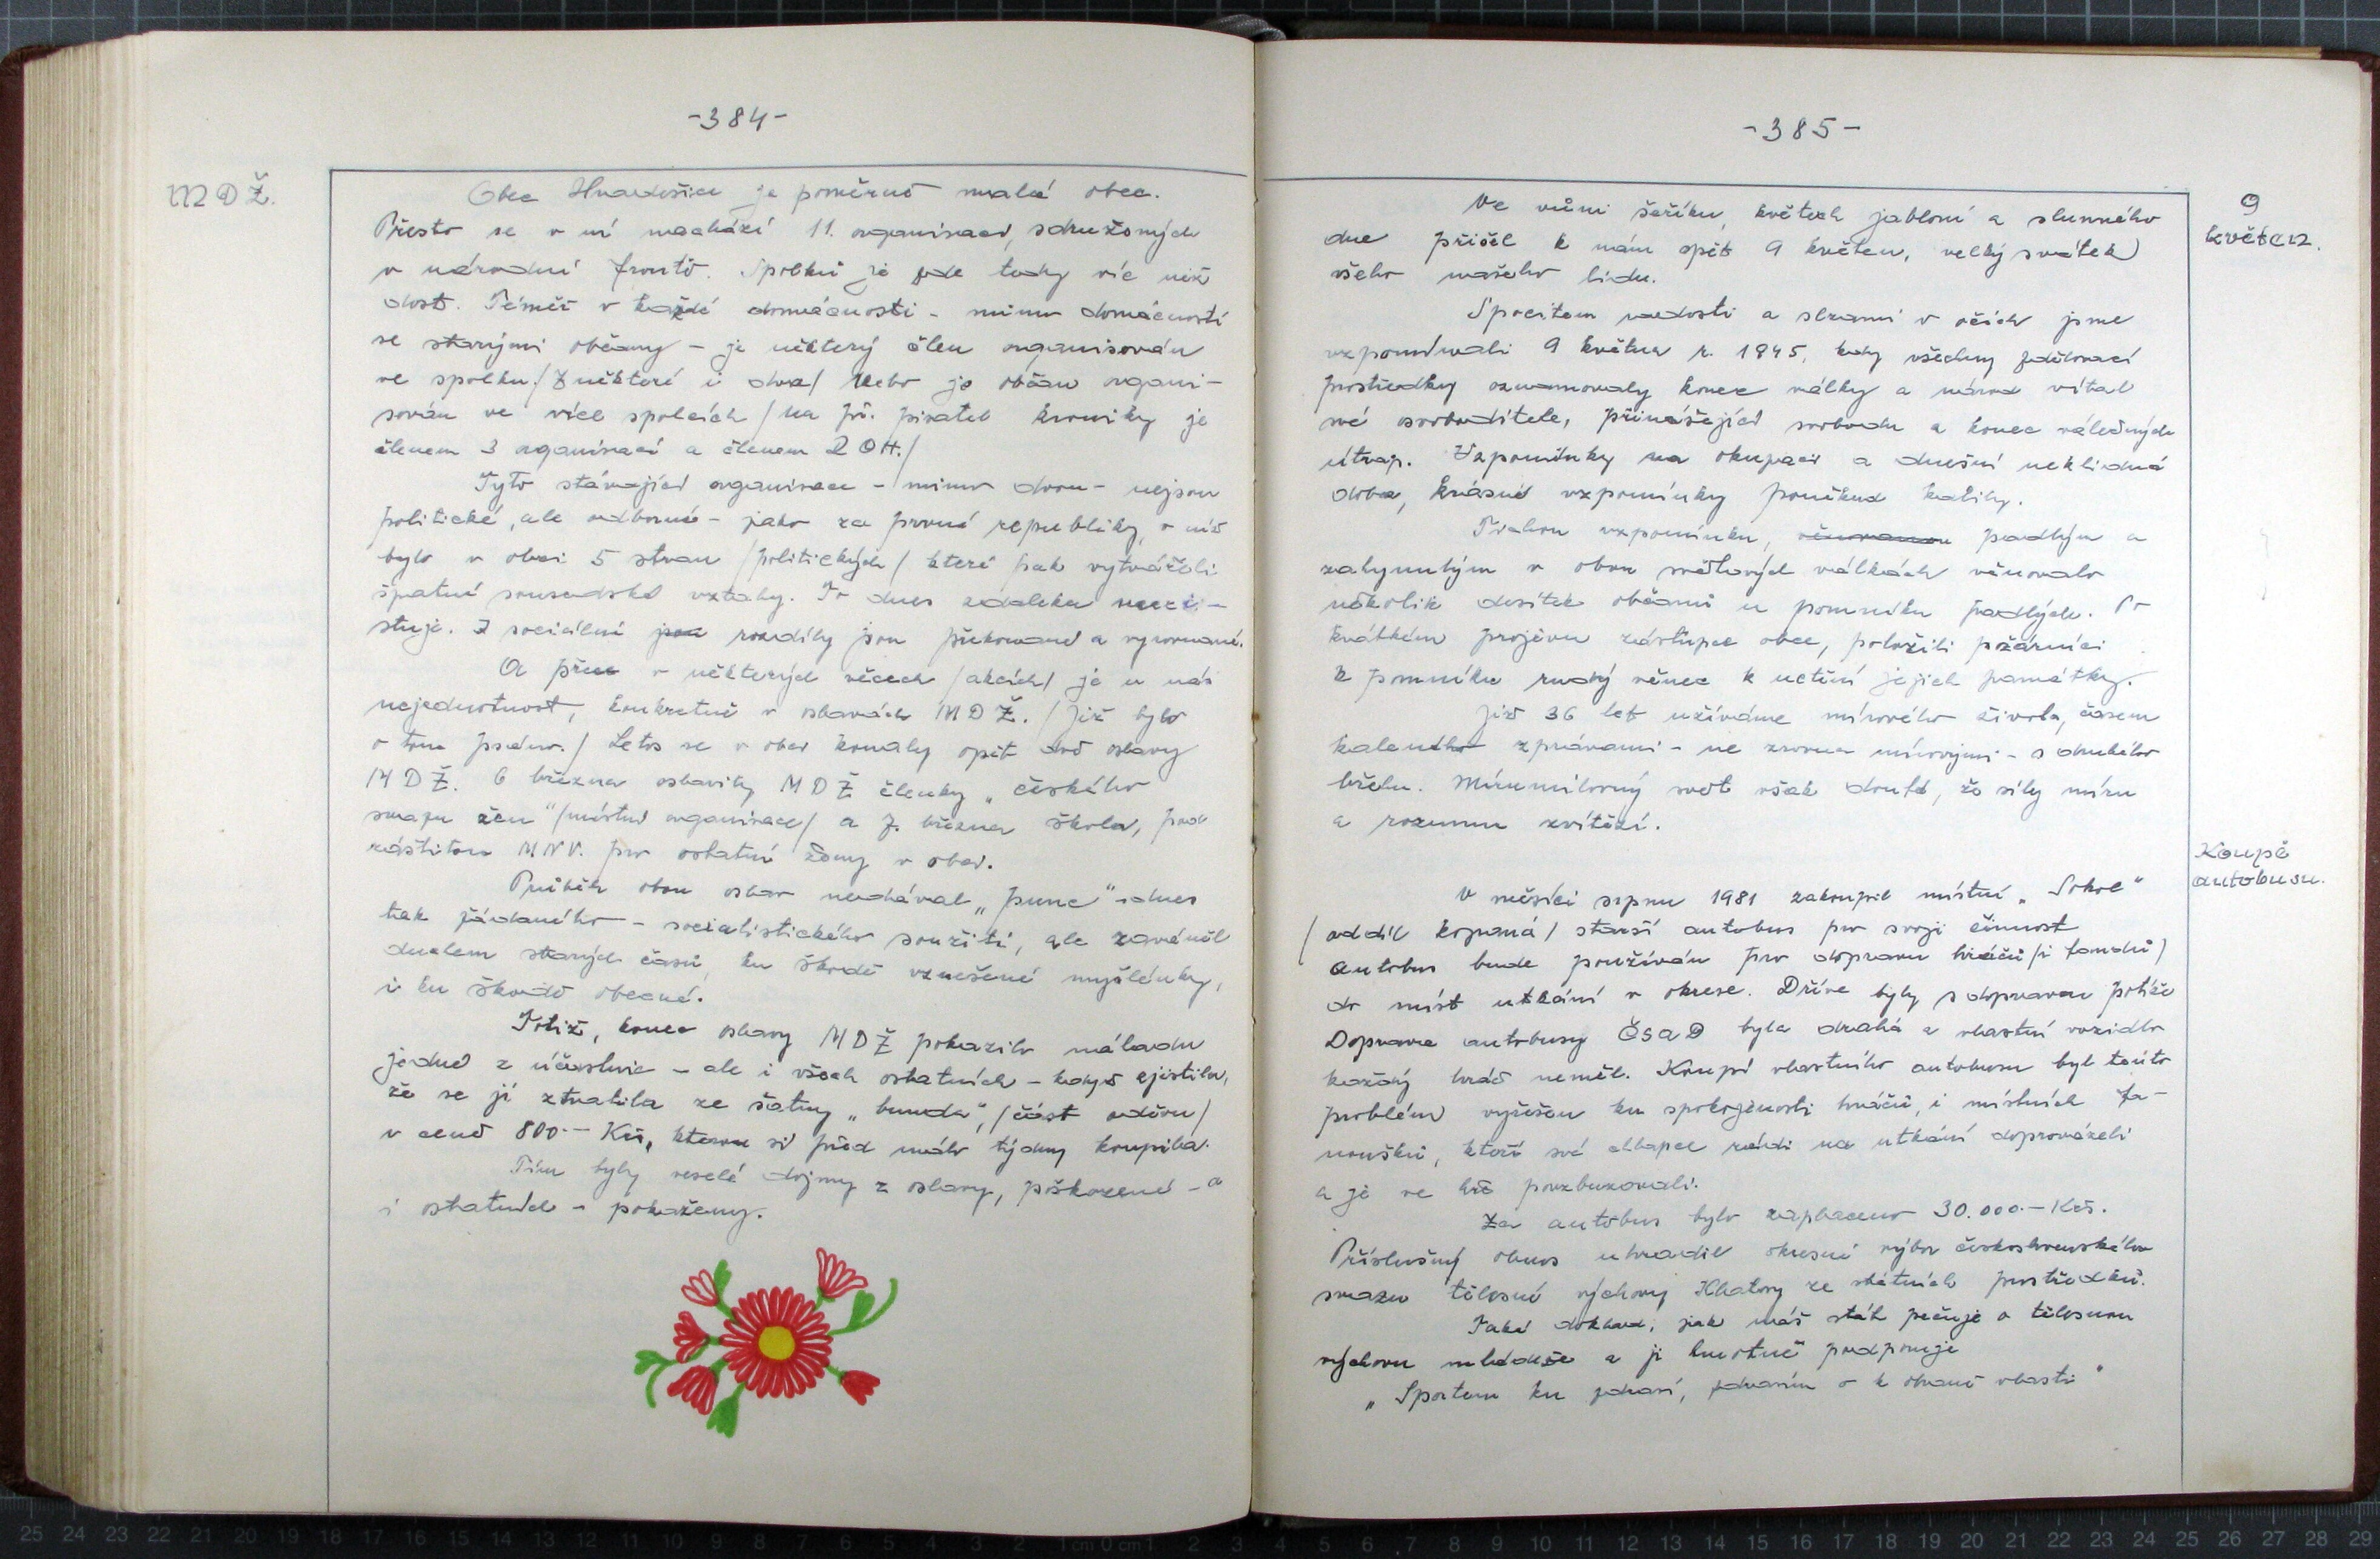 -384-
MDŽ.
Obec Hradešice je poměrně malá obec.
Přesto se v ní nachází 11. organisací, sdružených
v národní frontě. Spolků je zde tedy víc než
dost. Téměř v každé domácnosti - mimo domácností
se starými občany - je některý člen organisován
ve spolku. /Z některé i dva/ Nebo je občan organi-
sován ve více spolcích /na př. pisatel kroniky je
členem 3 organisací a členem ROH./
Tyto stávající organisace - mimo dvou - nejsou
politické, ale odborné - jako za první republiky, v níž
bylo v obci 5 stran /politických/ které pak vytvářeli
špatné sousedské vztahy. To dnes zdaleka neexi-
stuje. I sociální rozdíly jsou překonané a vyrovnané.
A přece v některých věcech /akcích/ je u nás
nejednotnost, konkretně v oslavách MDŽ. /Již bylo
o tom psáno./ Letos se v obci konaly opět dvě oslavy
MDŽ. 6 března oslavily MDŽ členky „českého
svazu žen" /místní organisace/ a 7. března škola, pod
záštitou MNV. pro ostatní ženy v obci.
Průběh obou oslav nedával „punc" - dnes
tak žádaného - socialistického soužití, ale zaváněl
duchem starých časů, ku škodě vznešené myšlénky,
i ku škodě obecné.
Totiž, konec oslavy MDŽ pokazilo náladu
jedné z účastnic - ale i všech ostatních - když zjistila,
že se jí ztratila ze šatny „bunda", /část oděvu/
v ceně 800.- Kčs, kterou si před málo týdny koupila.
Tím byly veselé dojmy z oslavy, poškozené - a
i ostatních - pokaženy.
-385-
9
květen.
Ve vůni šeříku, květech jabloní a slunného
dne přišel k nám opět 9 květen, velký svátek
všeho našeho lidu.
S pocitem radosti a slzami v očích jsme
vzpomínali 9 května r. 1945, kdy všechny sdělovací
prostředky oznamovaly konec války a národ vítal
své osvoboditele, přinášející svobodu a konec válečných
útrap. Vzpomínky na okupaci a dnešní neklidná
doba, krásné vzpomínky poněkud kalily.
Tichou vzpomínku, věnovanou padlým a
zahynulým v obou světových válkách věnovalo
několik desítek občanů u pomníku padlých. Po
krátkém projevu zástupce obce, položili požárníci
k pomníku rudý věnec k uctění jejich památky.
Již 36 let užíváme mírového života, časem
kaleného zprávami - ne zrovna mírovými - z druhého
břehu. Mírumilovný svět však doufá, že síly míru
a rozumu zvítězí.
Koupě
autobusu.
V měsíci srpnu 1981 zakoupil místní „Sokol"
/oddíl kopaná/ starší autobus pro svoji činnost
Autobus bude používán pro dopravu hráčů /i fandů/
do míst utkání v okrese. Dříve byly s dopravou potíže
Doprava autobusy ČSAD byla drahá a vlastní vozidlo
každý hráč neměl. Koupí vlastního autobusu byl tento
problém vyřešen ku spokojenosti hráčů, i místních fa-
noušků, kteří své chlapce rádi na utkání doprovázeli
a je ve hře povzbuzovali.
Za autobus bylo zaplaceno 30.000.- Kčs.
Příslušný obnos uhradil okresní výbor československého
svazu tělesné výchovy Klatovy ze státních prostředků.
Také doklad, jak náš stát pečuje o tělesnou
výchovu mládeže a ji hmotně podporuje
„Sportem ku zdraví, zdravím - k obraně vlasti"